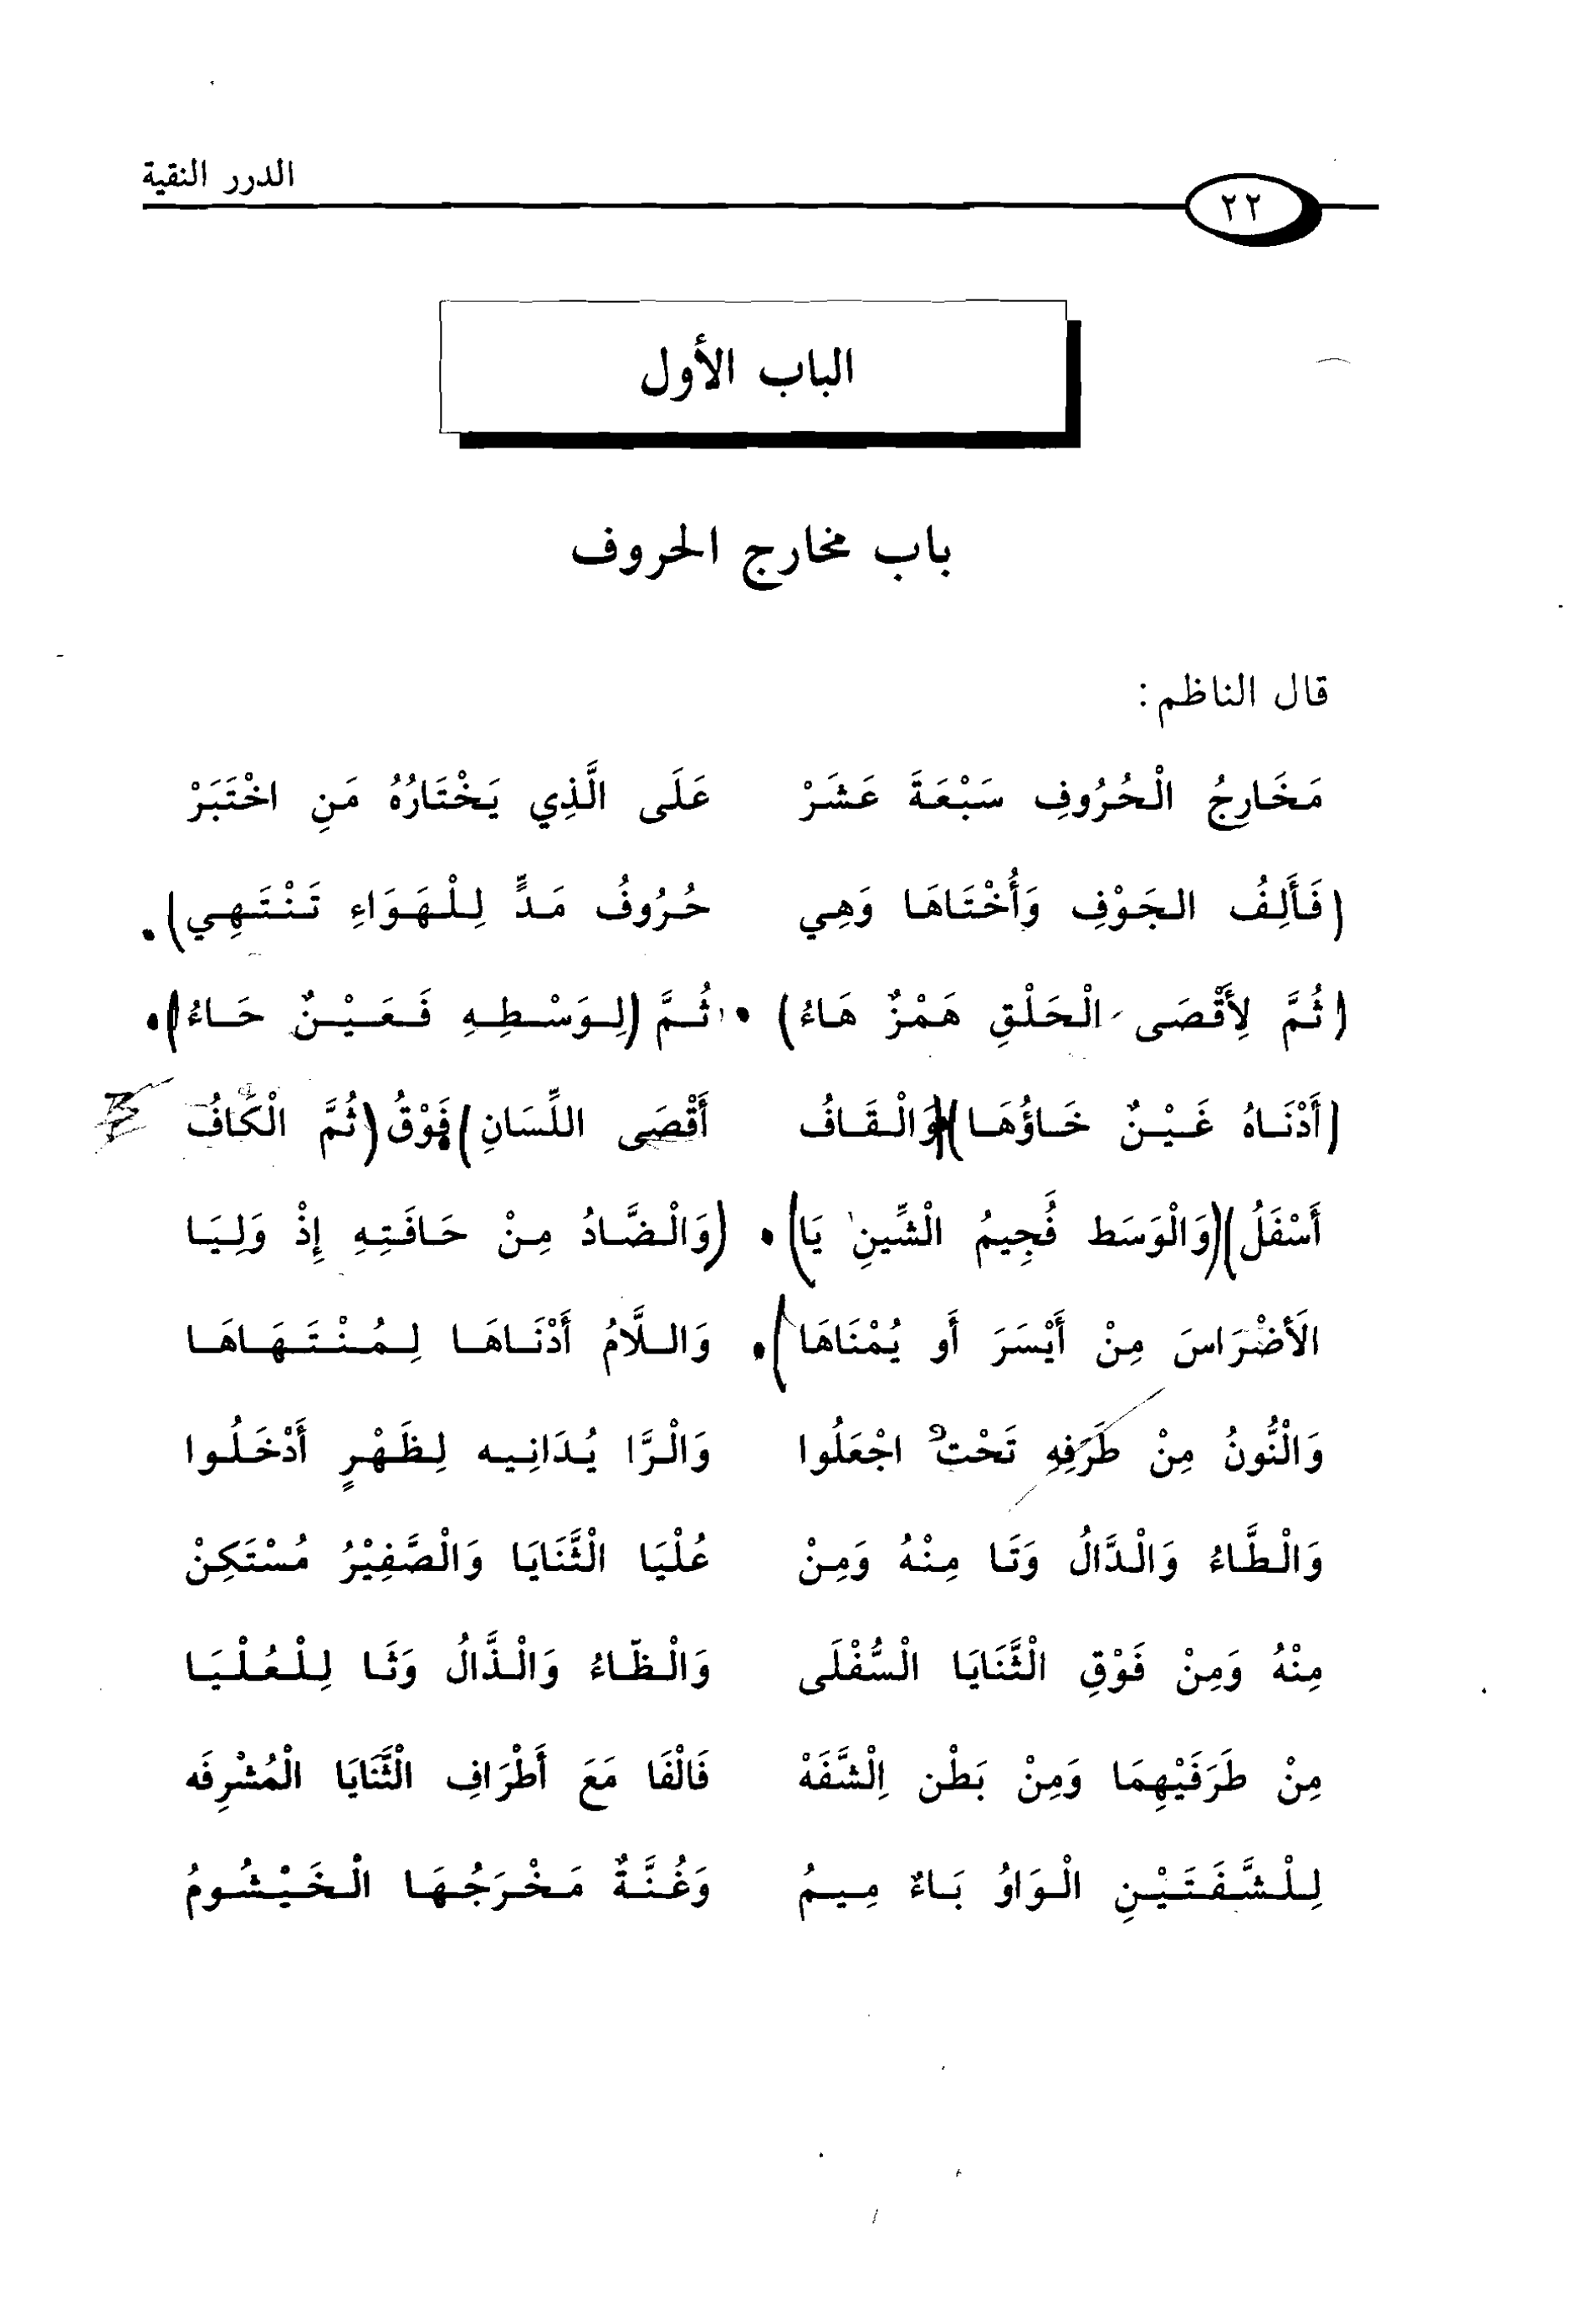 الدرر النقية
٢٢
الباب الأول
باب مخارج الحروف
قال الناظم:
مَخَارِجُ الْحُرُوفِ سَبْعَةَ عَشَرْ عَلَى الَّذِي يَخْتَارُهُ مَنِ اخْتَبَرْ
(فَأَلِفُ الجَوْفِ وَأُخْتَاهَا وَهِي حُرُوفُ مَدٍّ لِلْهَوَاءِ تَنْتَهِي).
(ثُمَّ لِأَقْصَى الْحَلْقِ هَمْزٌ هَاءُ) • ثُمَّ (لِوَسْطِهِ فَعَيْنٌ حَاءُ) •
(أَدْنَاهُ غَيْنٌ خَاؤُهَا)(وَالْقَافُ أَقْصَى اللِّسَانِ)فَوْقُ(ثُمَّ الْكَافُ
أَسْفَلُ)(وَالْوَسَط فُجِيمُ الْشِّينِ يَا) • (وَالْضَّادُ مِنْ حَافَتِهِ إِذْ وَلِيَا
الَأضْرَاسَ مِنْ أَيْسَرَ أَو يُمْنَاهَا) • وَاللَّامُ أَدْنَاهَا لِمُنْتَهَاهَا
وَالْنُّونُ مِنْ طَرَفِهِ تَحْتُ اجْعَلُوا وَالْرَّا يُدَانِيه لِظَهْرٍ أَدْخَلُوا
وَالْطَّاءُ وَالْدَّالُ وَتَا مِنْهُ وَمِنْ عُلْيَا الْثَّنَايَا وَالْصَّفِيْرُ مُسْتَكِنْ
مِنْهُ وَمِنْ فَوْقِ الْثَّنَايَا الْسُّفْلَى وَالْظَّاءُ وَالْذَّالُ وَثَا لِلْعُلْيَا
مِنْ طَرَفَيْهِمَا وَمِنْ بَطْن اِلْشَّفَهْ فَالْفَا مَعَ أَطْرَافِ الْثَّنَايَا الْمُشْرِفَه
لِلْشَّفَتَيْنِ الْوَاوُ بَاءٌ مِيمُ وَغُنَّةٌ مَخْرَجُهَا الْخَيْشُومُ